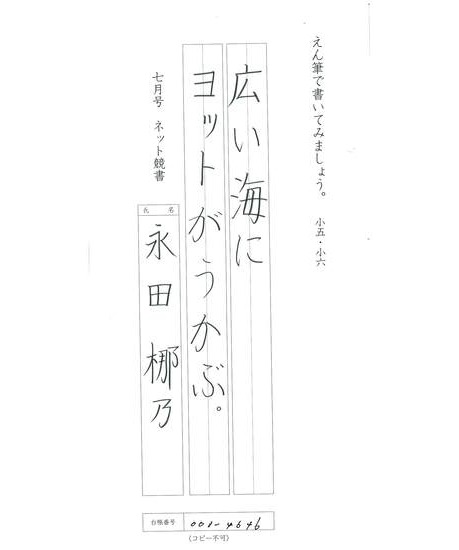 えん筆で書いてみましょう。 小五・小六
広い海に
ヨットがうかぶ。
七月号 ネット競書
氏名
永田梛乃
台帳番号 001-4646
(コピー不可)